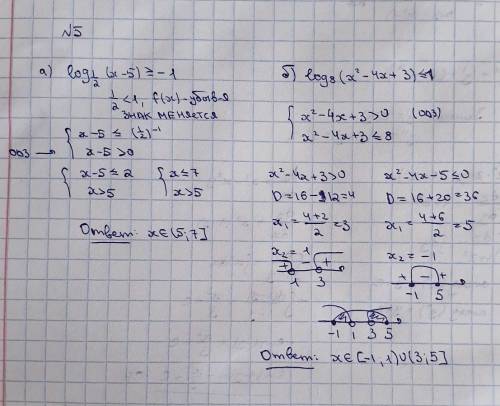 №5
а) log½ (x-5) ≥ -1
½<1, f(x)-убывая
ЗНАК МЕНЯЕТСЯ
ООЗ → { x-5 ≤ (½)⁻¹
x-5>0
{ x-5 ≤ 2 { x ≤ 7
x>5 x>5
Ответ: x∈(5;7]
б) log₈ (x²-4x+3) ≤ 1
{ x²-4x+3>0 (ООЗ)
x²-4x+3 ≤ 8
x²-4x+3>0
D=16-12=4
x₁ = (4+2)/2 = 3
x₂ = 1
+ - +
1 3
x²-4x-5≤0
D=16+20=36
x₁ = (4+6)/2 = 5
x₂ = -1
+ - +
-1 5
-1 1 3 5
Ответ: x∈[-1,1)∪(3;5]